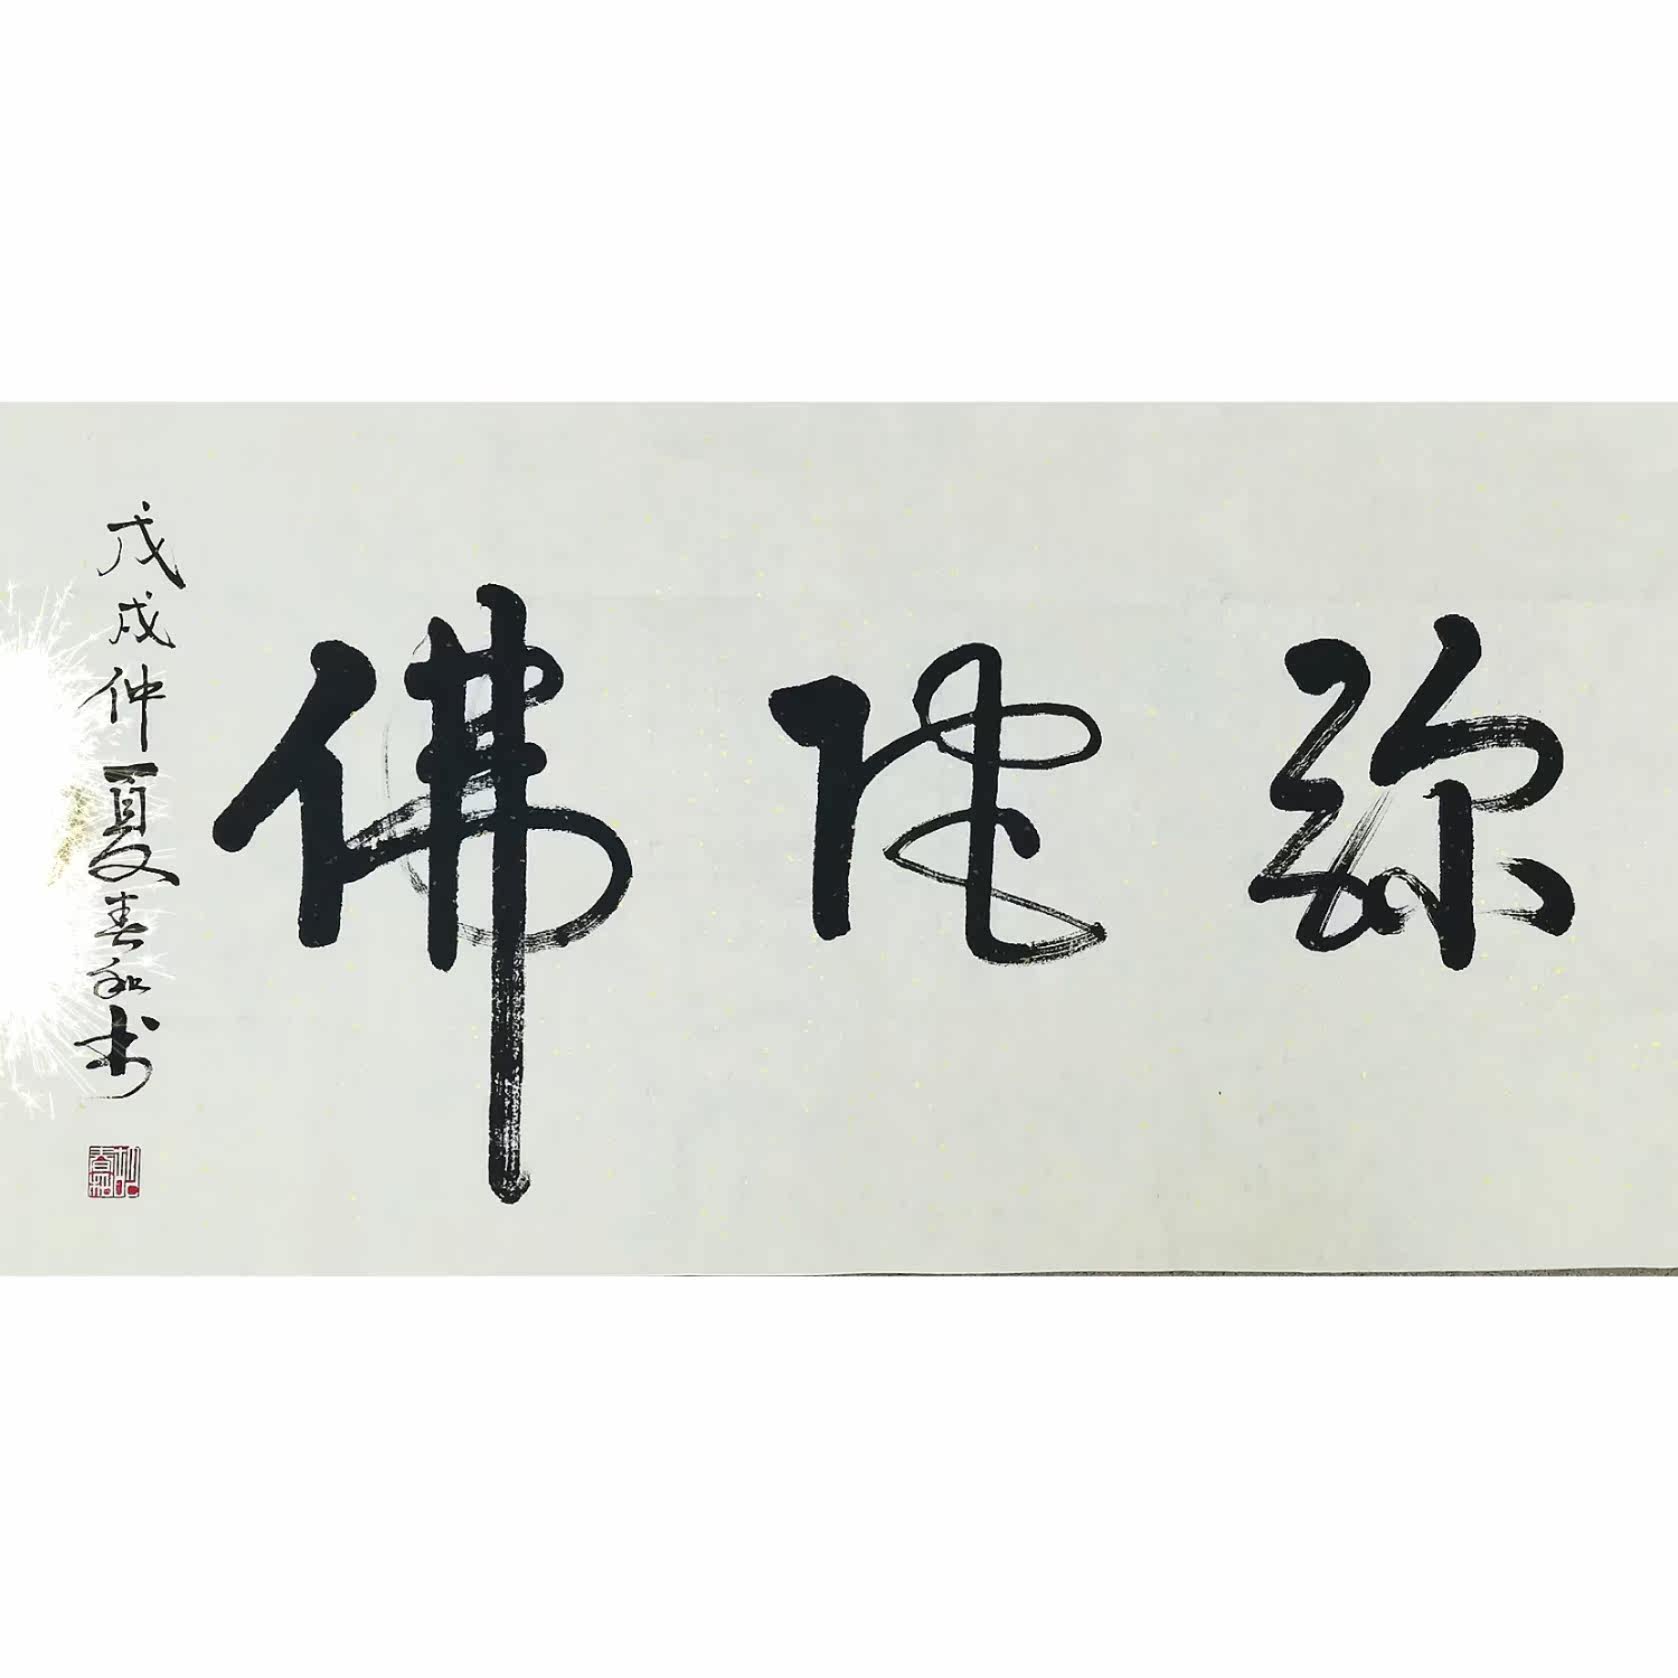 弥陀佛
戊戌仲夏春和书